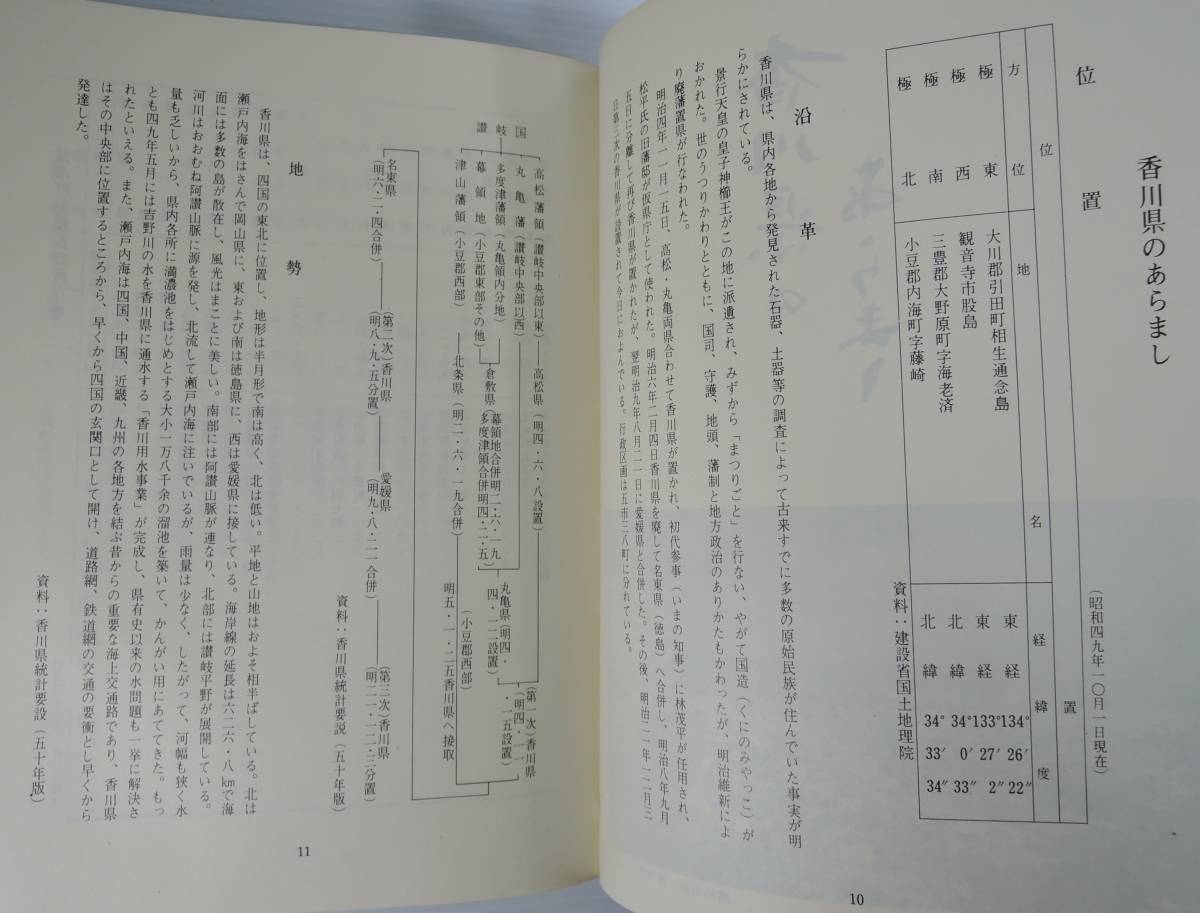 香川県のあらまし
位置
(昭和四九年一〇月一日現在)
方位
位置
地名
経緯度
極東
大川郡引田町相生通念島
東経 134° 26′ 22″
極西
観音寺市股島
東経 133° 27′ 2″
極南
三豊郡大野原町字海老済
北緯 34° 0′ 33″
極北
小豆郡内海町字藤崎
北緯 34° 33′ 34″
資料：建設省国土地理院
沿革
香川県は、県内各地から発見された石器、土器等の調査によって古来すでに多数の原始民族が住んでいた事実が明
らかにされている。
景行天皇の皇子神櫛王がこの地に派遣され、みずから「まつりごと」を行ない、やがて国造（くにのみやっこ）が
おかれた。世のうつりかわりとともに、国司、守護、地頭、藩制と地方政治のありかたもかわったが、明治維新によ
り廃藩置県が行なわれた。
明治四年一一月一五日、高松・丸亀両県合わせて香川県が置かれ、初代参事（いまの知事）に林茂平が任用され、
松平氏の旧藩邸が仮県庁として使われた。明治六年二月四日香川県を廃して名東県（徳島）へ合併し、明治八年九月
五日に分離して再び香川県が置かれたが、翌明治九年八月二一日に愛媛県と合併した。その後、明治二一年一二月三
日第三次の香川県が設置されて今日におよんでいる。行政区画は五市三八町に分れている。
10
讃岐国
高松藩領（讃岐中央部以東）
高松県（明四・六・八設置）
丸亀藩（讃岐中央部以西）
丸亀県（明四・
四・一二設置）
多度津藩領（丸亀領内分地）
幕領地（小豆郡東部その他）
倉敷県
幕領地合併明二・六・一九
多度津領合併明四・二・五
津山藩領（小豆郡西部）
北条県（明二・六・一九合併）
（小豆郡西部）
明五・一・二五香川県へ接取
（第一次）香川県
（明四・一一
・一五設置）
名東県
（明六・二・四合併）
（第二次）香川県
（明八・九・五分置）
愛媛県
（明九・八・二一合併）
（第三次）香川県
（明二一・一二・三分置）
資料：香川県統計要説（五十年版）
地勢
香川県は、四国の東北に位置し、地形は半月形で南は高く、北は低い。平地と山地はおよそ相半ばしている。北は
瀬戸内海をはさんで岡山県に、東および南は徳島県に、西は愛媛県に接している。海岸線の延長は六二六・八kmで海
面には多数の島が散在し、風光はまことに美しい。南部には阿讃山脈が連なり、北部には讃岐平野が展開している。
河川はおおむね阿讃山脈に源を発し、北流して瀬戸内海に注いでいるが、雨量は少なく、したがって、河幅も狭く水
量も乏しいから、県内各所に満濃池をはじめとする大小一万八千余の溜池を築いて、かんがい用にあててきた。もっ
とも四九年五月には吉野川の水を香川県に通水する「香川用水事業」が完成し、県有史以来の水問題も一挙に解決さ
れたといえる。また、瀬戸内海は四国、中国、近畿、九州の各地方を結ぶ昔からの重要な海上交通路であり、香川県
はその中央部に位置するところから、早くから四国の玄関口として開け、道路網、鉄道網の交通の要衝とし早くから
発達した。
資料：香川県統計要設（五十年版）
11